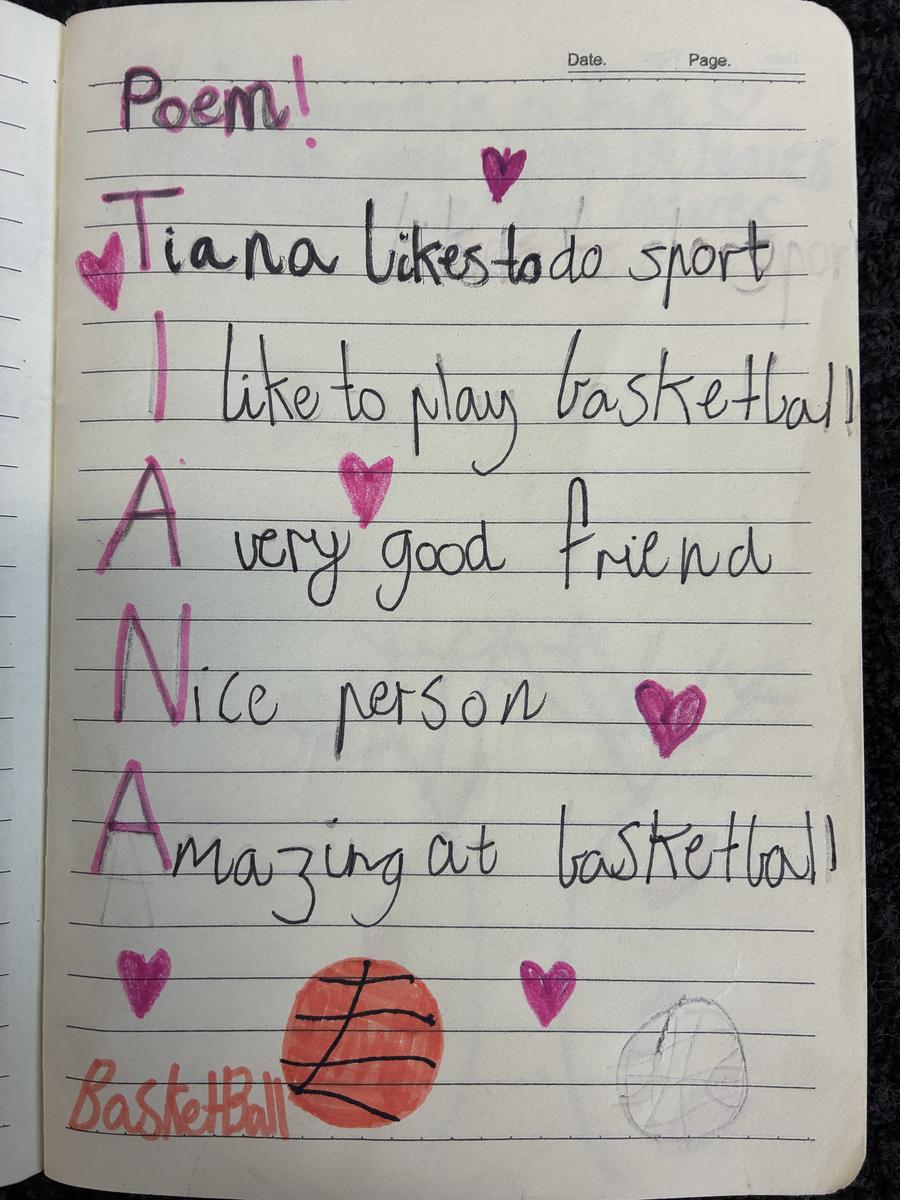 Date. Page.
Poem!
Tiana likes to do sport
I like to play basketball
A very good friend
Nice person
Amazing at basketball
BasketBall